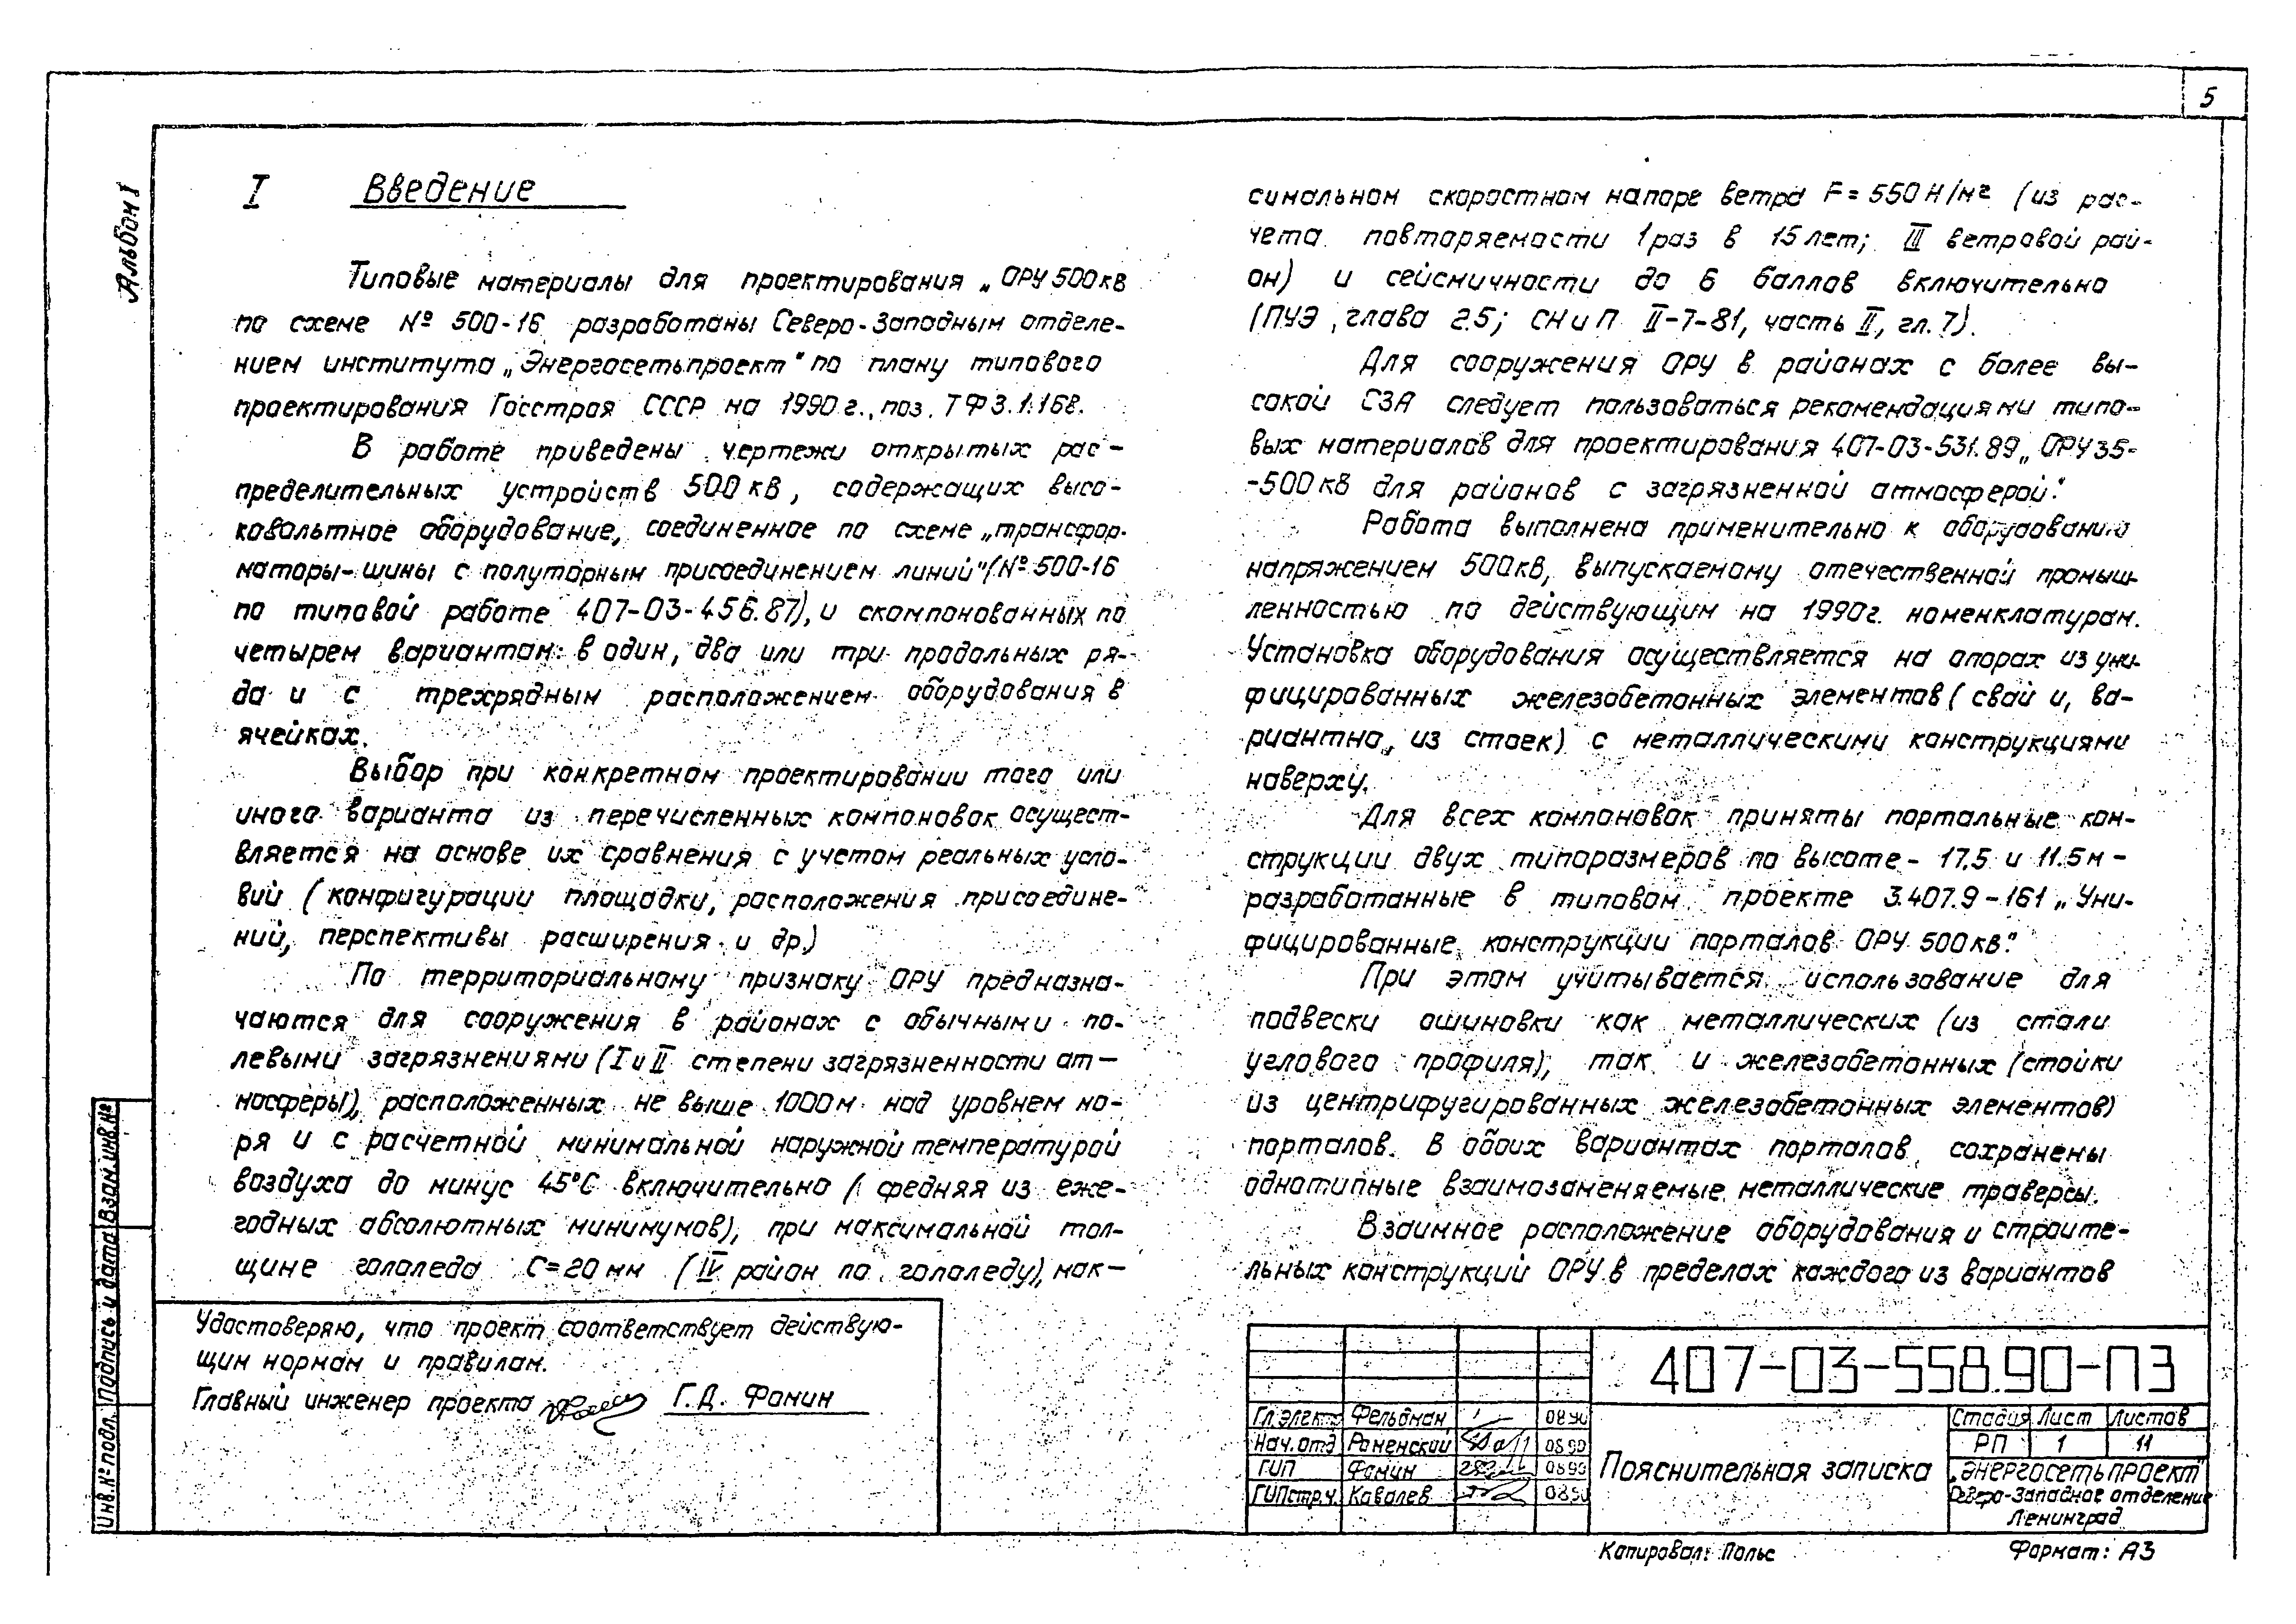 5
Альбом I
I Введение
Типовые материалы для проектирования „ОРУ 500 кВ
по схеме № 500-16 разработаны Северо-Западным отделе-
нием института „Энергосетьпроект" по плану типового
проектирования Госстроя СССР на 1990 г., поз. ТФ 3.1.168.
В работе приведены чертежи открытых рас-
пределительных устройств 500 кВ, содержащих высо-
ковольтное оборудование, соединенное по схеме „трансфор-
маторы-шины с полуторным присоединением линий" (№ 500-16
по типовой работе 407-03-456.87), и скомпонованных по
четырем вариантам: в один, два или три продольных ря-
да и с трехрядным расположением оборудования в
ячейках.
Выбор при конкретном проектировании того или
иного варианта из перечисленных компоновок осущест-
вляется на основе их сравнения с учетом реальных усло-
вий (конфигурации площадки, расположения присоедине-
ний, перспективы расширения и др.)
По территориальному признаку ОРУ предназна-
чаются для сооружения в районах с обычными по-
левыми загрязнениями (I и II степени загрязненности ат-
мосферы), расположенных не выше 1000 м над уровнем мо-
ря и с расчетной минимальной наружной температурой
воздуха до минус 45°С включительно (средняя из еже-
годных абсолютных минимумов), при максимальной тол-
щине гололеда С=20 мм (IV район по гололеду), мак-
симальном скоростном напоре ветра F = 550 Н/м² (из рас-
чета повторяемости 1 раз в 15 лет; III ветровой рай-
он) и сейсмичности до 6 баллов включительно
(ПУЭ, глава 2.5; СНиП II-7-81, часть II, гл. 7).
Для сооружения ОРУ в районах с более вы-
сокой СЗА следует пользоваться рекомендациями типо-
вых материалов для проектирования 407-03-531.89 „ОРУ 35-
-500 кВ для районов с загрязненной атмосферой."
Работа выполнена применительно к оборудованию
напряжением 500кВ, выпускаемому отечественной промыш-
ленностью по действующим на 1990г. номенклатурам.
Установка оборудования осуществляется на опорах из уни-
фицированных железобетонных элементов (свай и, ва-
риантно, из стоек) с металлическими конструкциями
наверху.
Для всех компоновок приняты портальные кон-
струкции двух типоразмеров по высоте - 17.5 и 11.5 м -
разработанные в типовом проекте 3.407.9-161 „Уни-
фицированные конструкции порталов ОРУ 500 кВ."
При этом учитывается использование для
подвески ошиновки как металлических (из стали
углового профиля), так и железобетонных (стойки
из центрифугированных железобетонных элементов)
порталов. В обоих вариантах порталов сохранены
однотипные взаимозаменяемые металлические траверсы.
Взаимное расположение оборудования и строите-
льных конструкций ОРУ в пределах каждого из вариантов
Удостоверяю, что проект соответствует действую-
щим нормам и правилам.
Главный инженер проекта Г.Д. Фомин
Инв.№ подл. Подпись и дата Взам.инв.№
407-03-558.90-ПЗ
Гл.элект. Фельдман 08.90
Нач.отд Роменский 08.90
ГИП Фомин 08.90
ГИПстр.ч. Ковалев 08.90
Пояснительная записка
Стадия Лист Листов
РП 1 11
„ЭНЕРГОСЕТЬПРОЕКТ"
Северо-Западное отделение
Ленинград
Копировал: Польс
Формат: А3